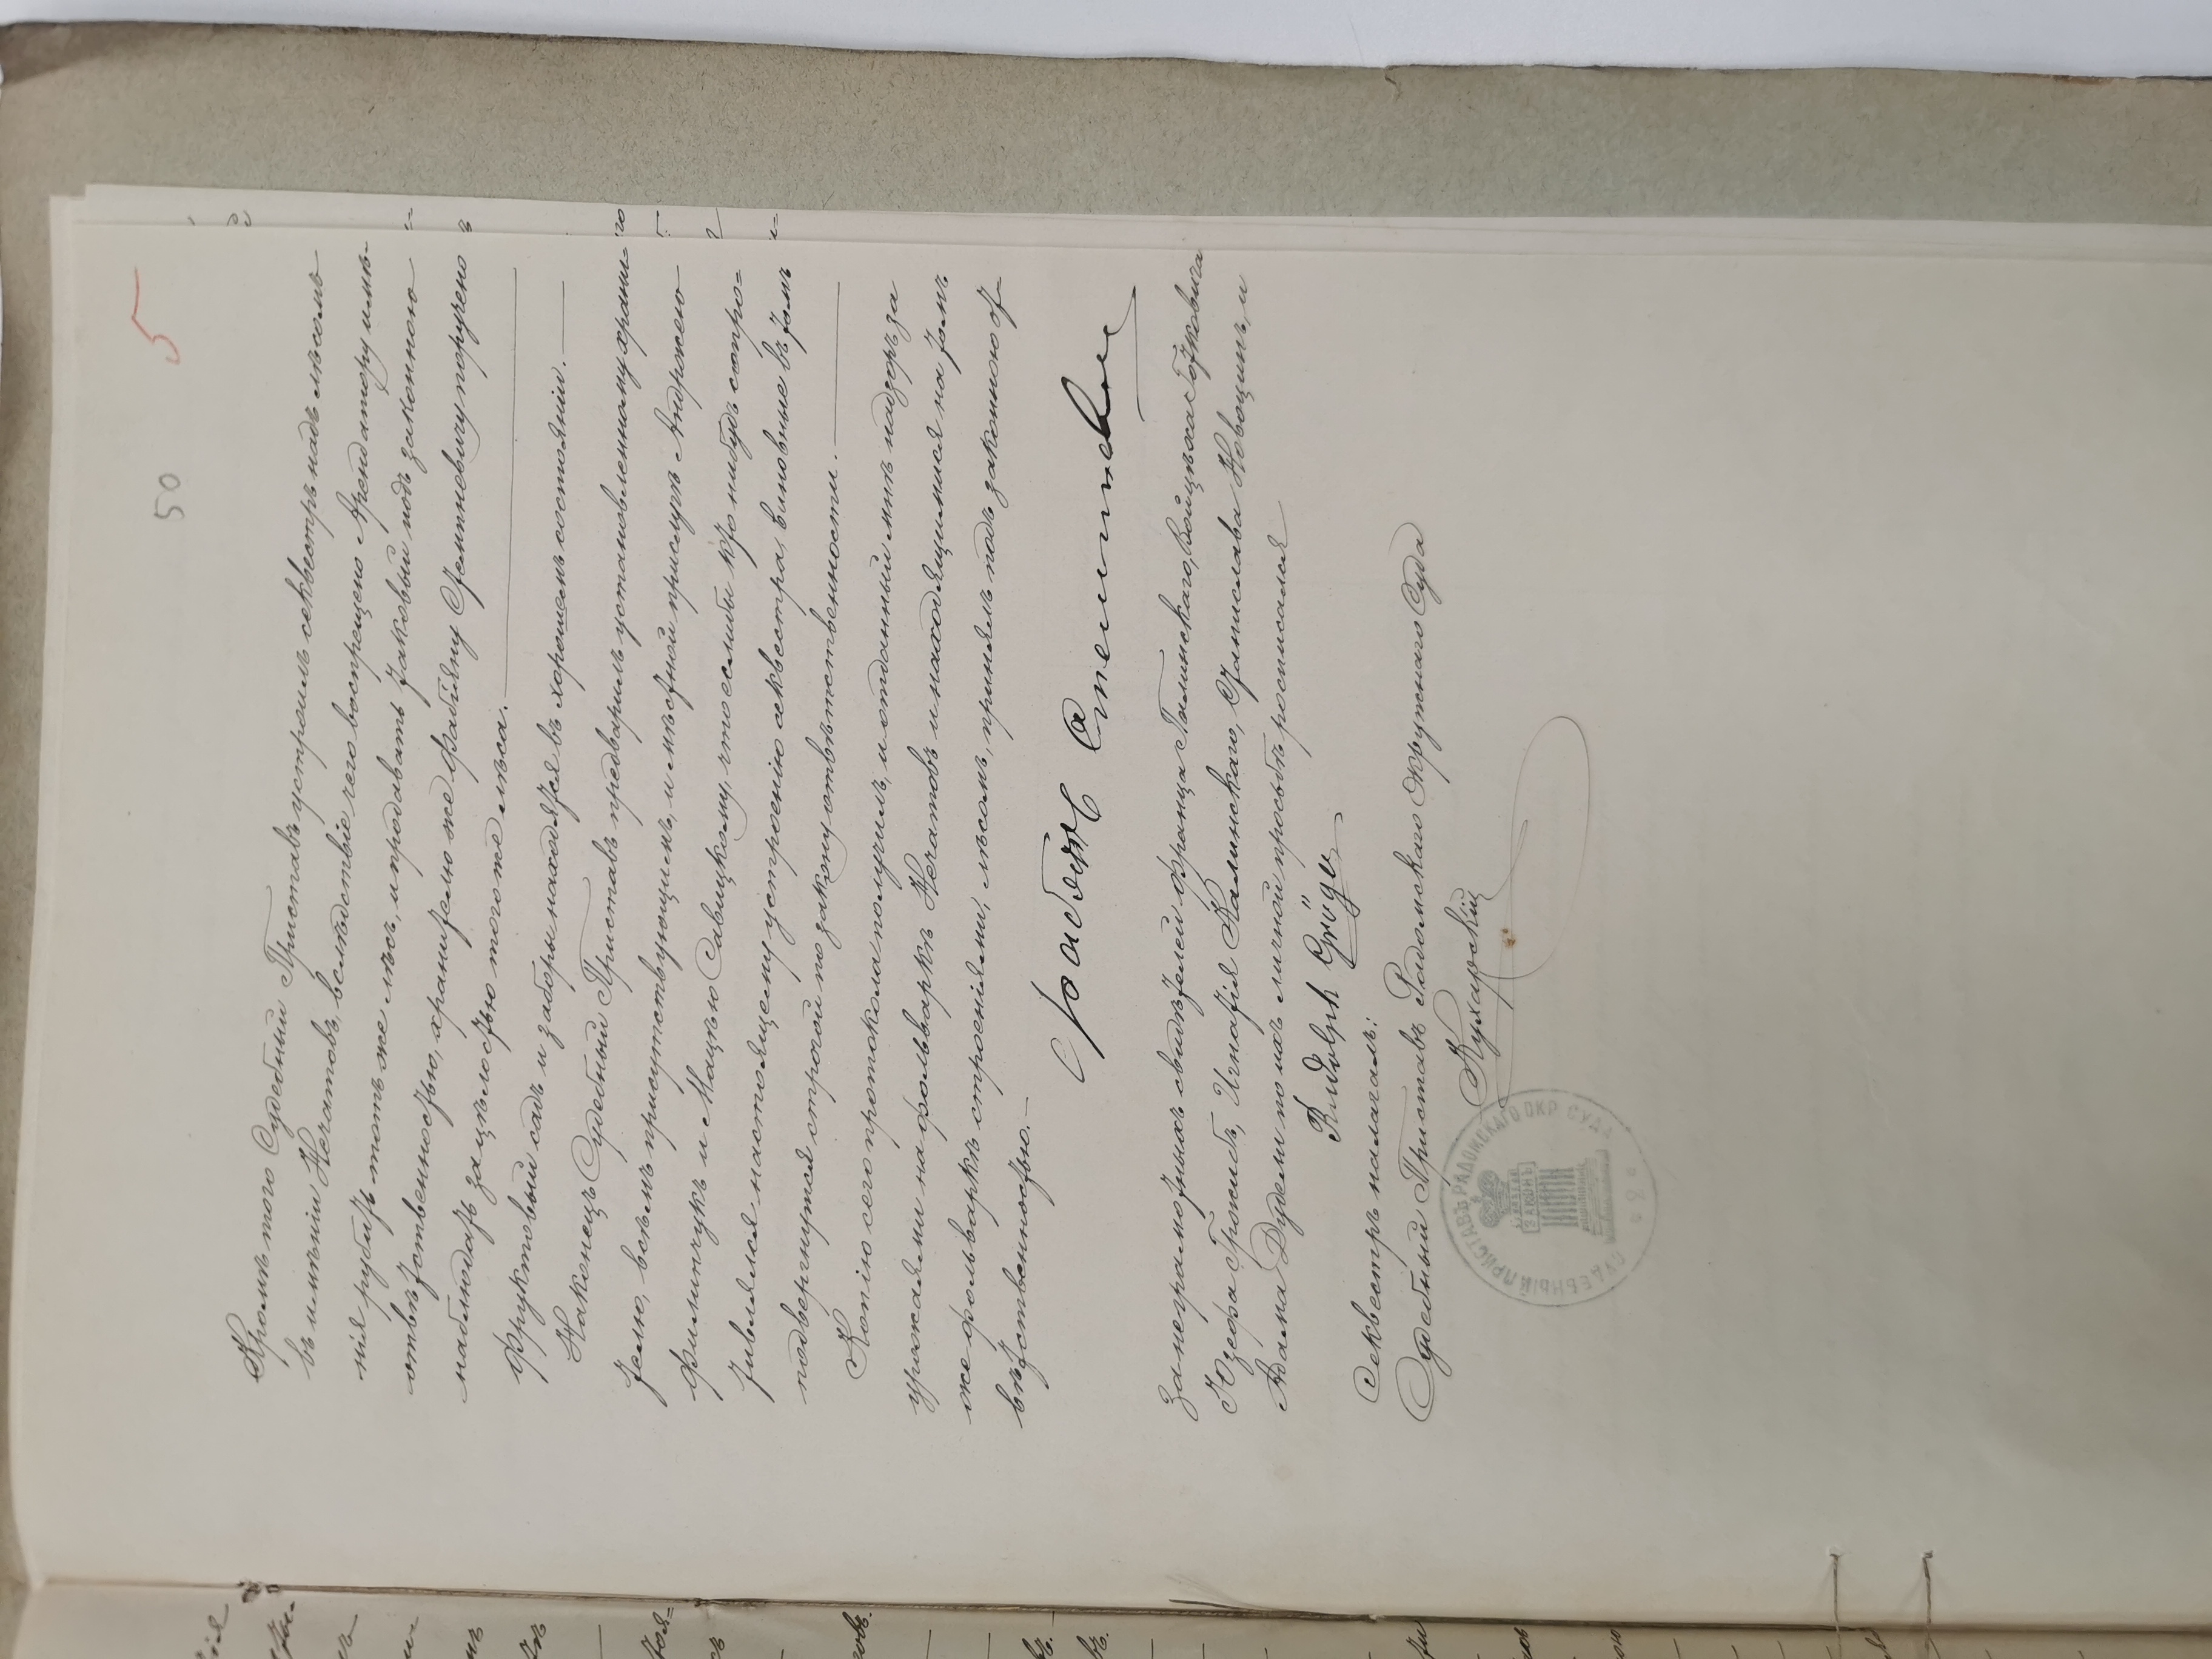 50 5
Кромѣ того Судебный Приставъ устроилъ секвестръ надъ лѣсомъ
въ имѣніи Нечатовъ, вслѣдствіе чего воспрещено Арендатору имѣ-
нія рубить тотъ же лѣсъ, и продавать таковый подъ законною
отвѣтственностью, хранителю же Фабіяну Стемпневичу поручено
наблюдать за цѣлостью того же лѣса.
Фруктовый садъ и заборы находятся въ хорошемъ состояніи.
Наконецъ Судебный Приставъ предварилъ установленному храни-
телю, всѣмъ присутствующимъ, и мѣстной прислугѣ Андрею
Филипчукъ и Мацѣю Савицкому, что еслибы кто нибудь сопро=
тивлялся настоящему устроенію секвестра, виновные въ томъ
подвергнутся строгой по закону отвѣтственности.
Копію сего протокола получилъ, и отданный мнѣ надзоръ за
урожаями на фольваркѣ Нечатовъ и находящимися на томъ
же фольваркѣ строеніями, лѣсомъ, принялъ подъ законною от-
вѣтственностью.
Фабіянъ Стемпневич
За неграмотныхъ свидѣтелей Франца Галинскаго, Войцѣха
Юзефа Гржибъ, Игнатія Калинскаго, Станислава Новоцинъ, и
Адама Дудемъ по ихъ личной просьбѣ росписался
Rudolph Grüger
Секвестръ налагалъ:
Судебный Приставъ Радомскаго Окружнаго Суда
Кухарскій
СУДЕБНЫЙ ПРИСТАВЪ РАДОМСКАГО ОКР. СУДА
ЗАКОНЪ